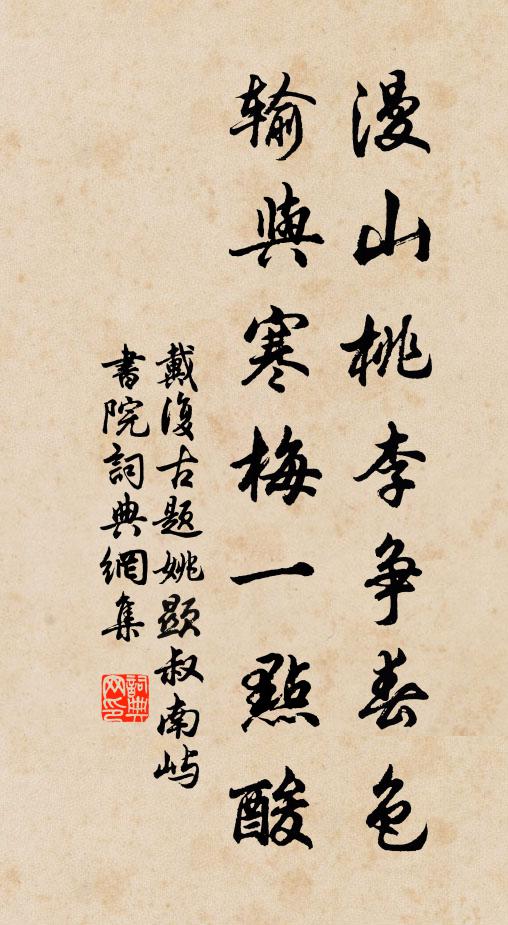 漫山桃李争春色
输與寒梅一點酸
戴復古題姚顯叔南屿
書院詞典網集
詞典网印